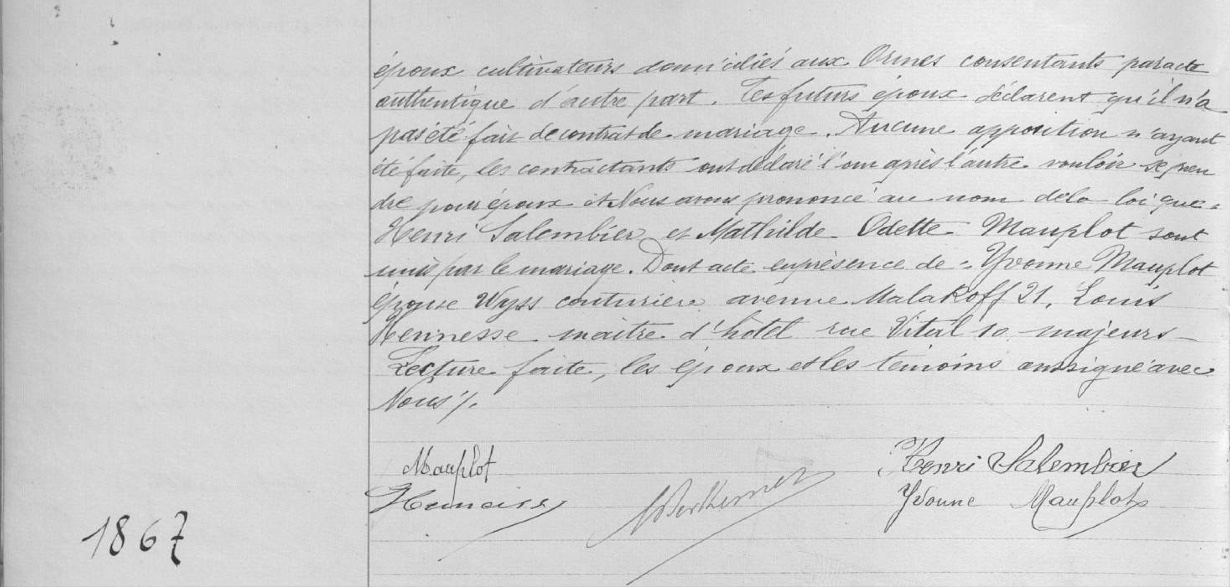 époux cultivateurs domiciliés aux Ormes consentants par acte
authentique d'autre part. Les futurs époux déclarent qu'il n'a
pas été fait de contrat de mariage. Aucune opposition n'ayant
été faite, les contractants ont déclaré l'un après l'autre vouloir se pren
dre pour époux et Nous avons prononcé au nom de la loi que
Henri Salembier et Mathilde Odette Mauplot sont
unis par le mariage. Dont acte en présence de : Yvonne Mauplot
épouse Wyss couturière avenue Malakoff 21, Louis
Hennesse maitre d'hôtel rue Vital 10 majeurs —
Lecture faite, les époux et les témoins ont signé avec
Nous ./.
Mauplot Henri Salembier
Yvonne Mauplot
1867